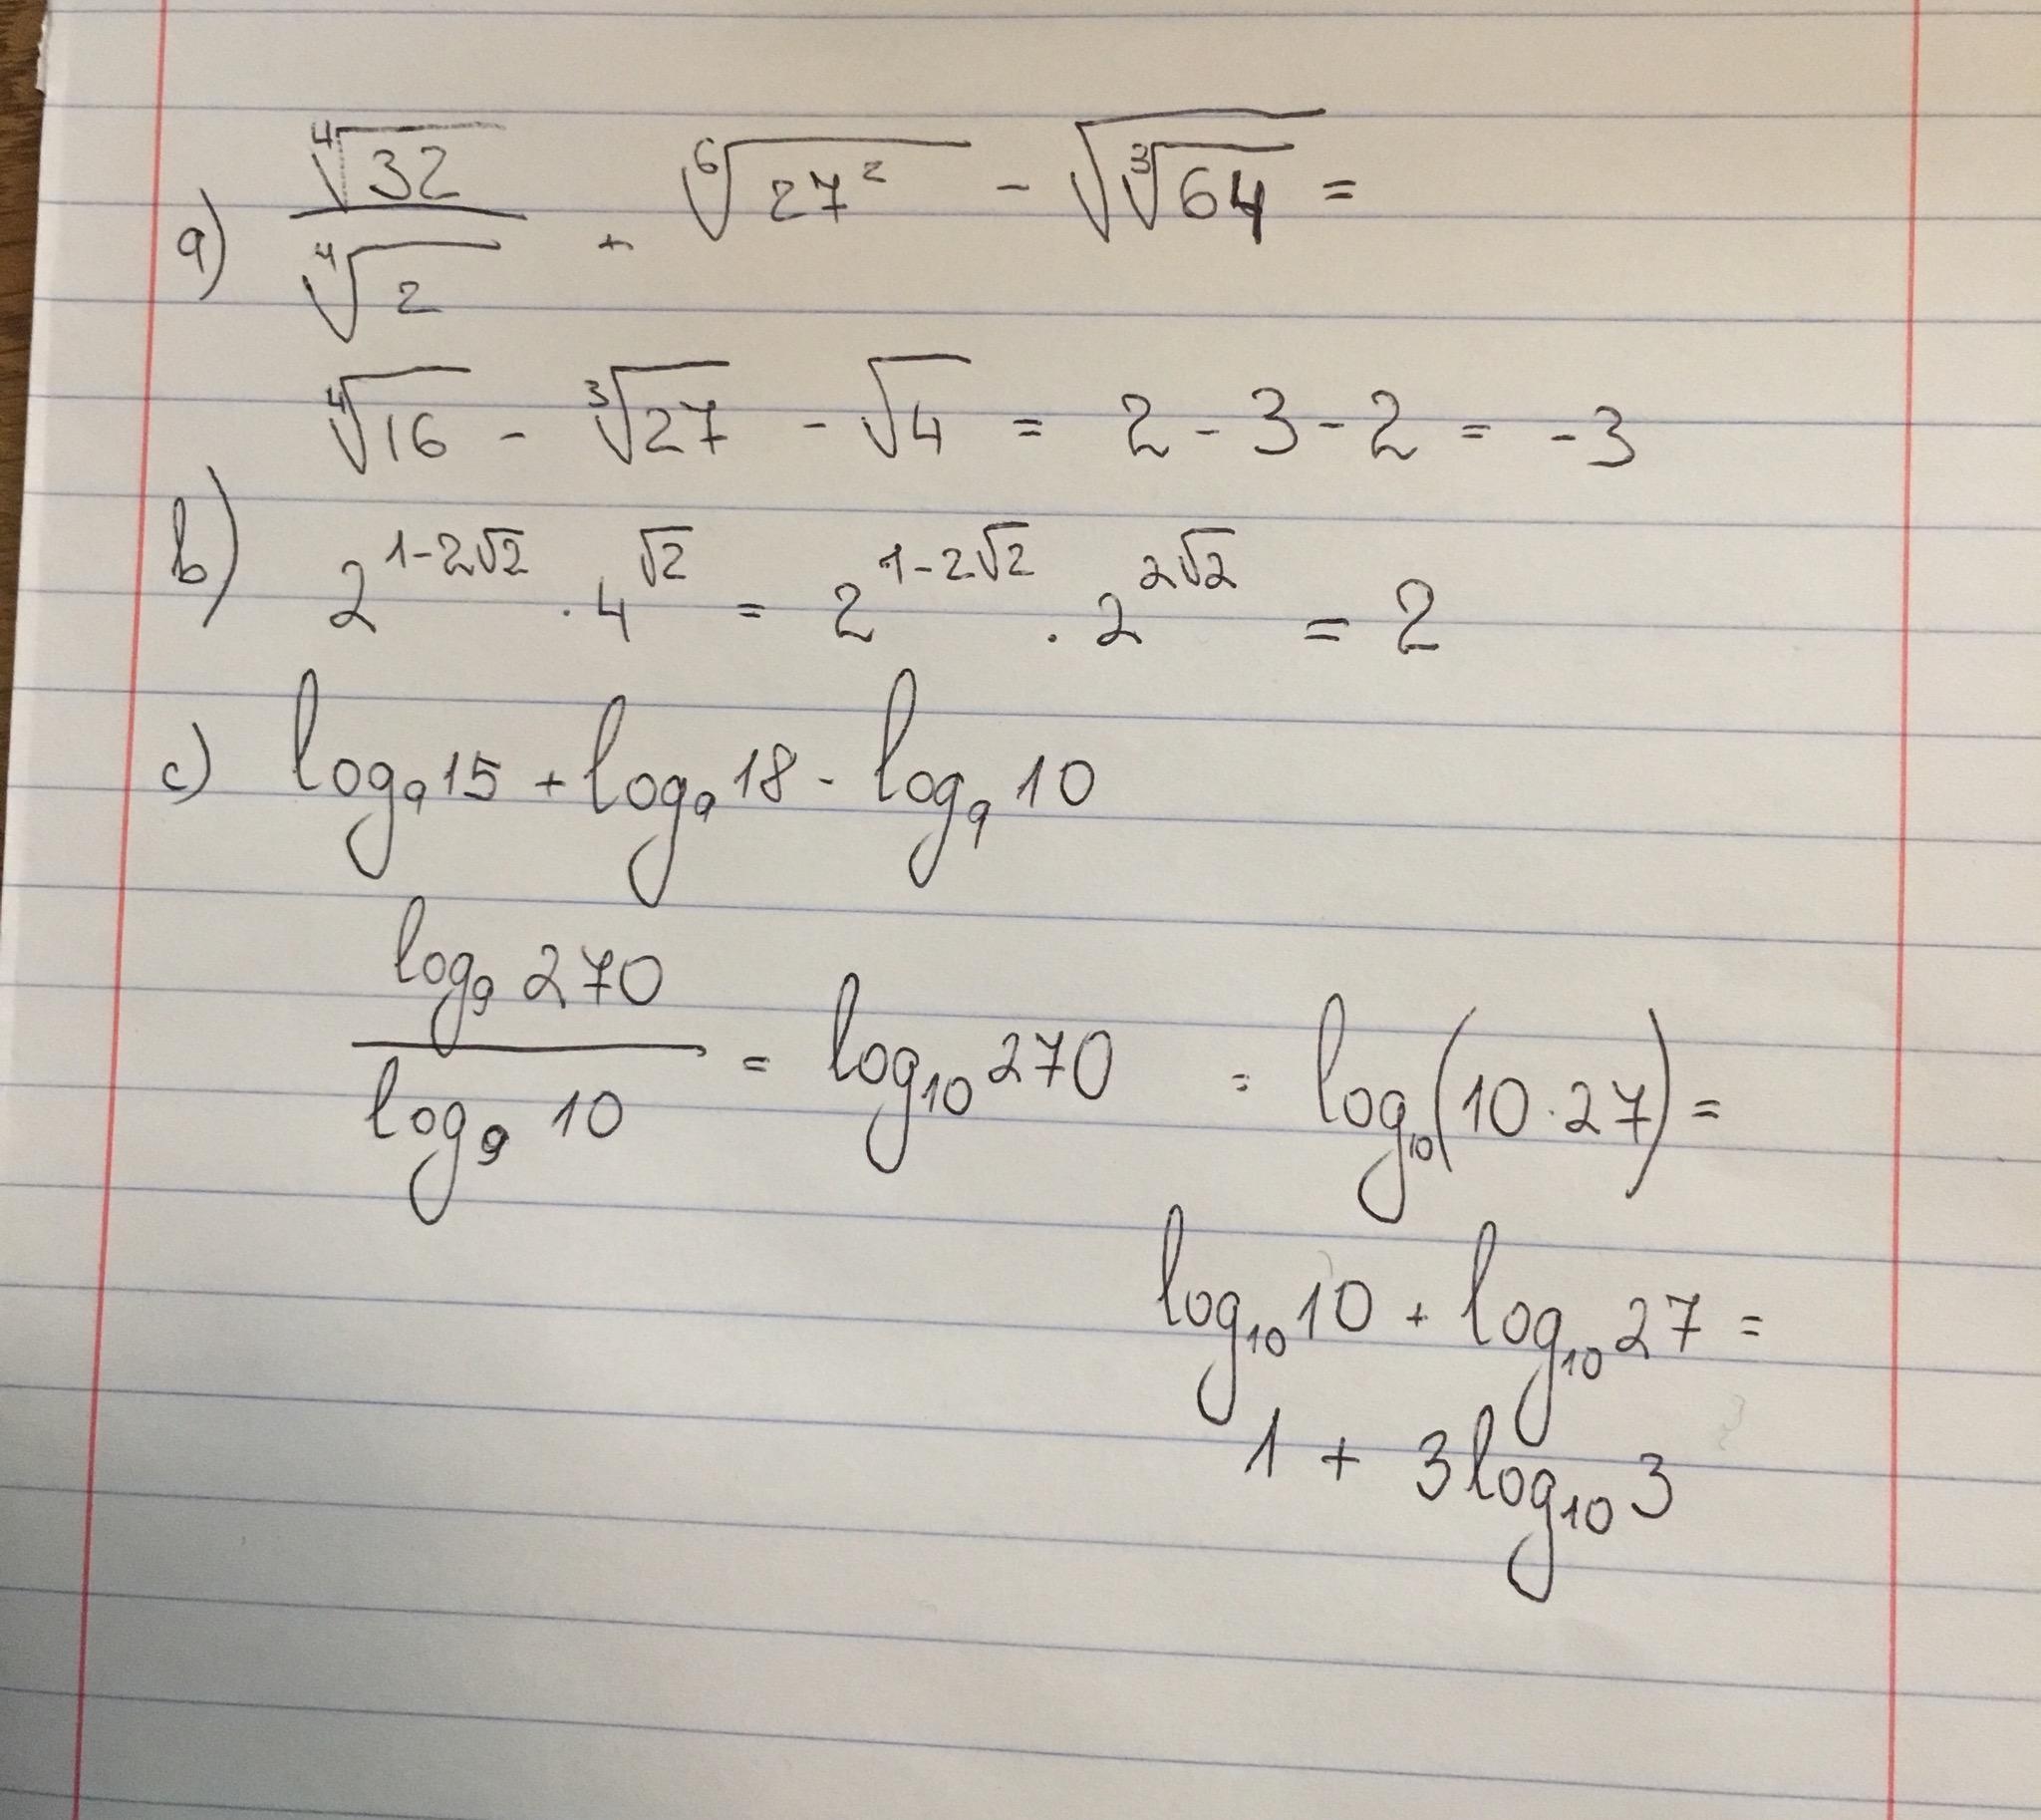 a) ⁴√32 / ⁴√2 + ⁶√27² - √³√64 =
⁴√16 - ³√27 - √4 = 2 - 3 - 2 = -3
b) 2^(1-2√2) · 4^(√2) = 2^(1-2√2) · 2^(2√2) = 2
c) log₉15 + log₉18 - log₉10
log₉270 / log₉10 = log₁₀270 = log₁₀(10·27) =
log₁₀10 + log₁₀27 =
1 + 3log₁₀3